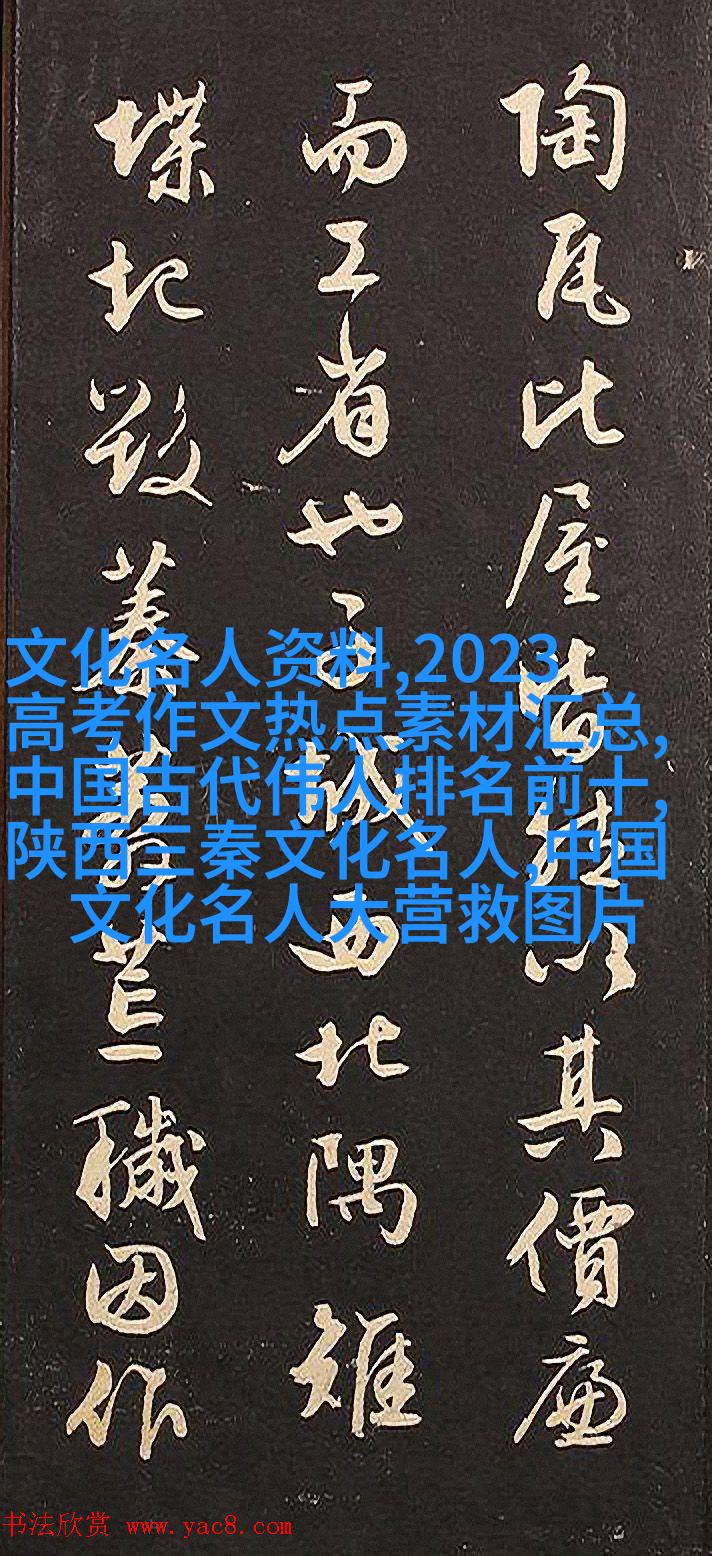 陶瓦比屋皆然以其價廉
而工省也子城西北隅雉
堞圮毀蓁莽荒穢因作
文化名人资料,2023
高考作文热点素材汇总,
中国古代伟人排名前十,
陕西三秦文化名人,中国
文化名人大营救图片
书法欣赏 www.yac8.com